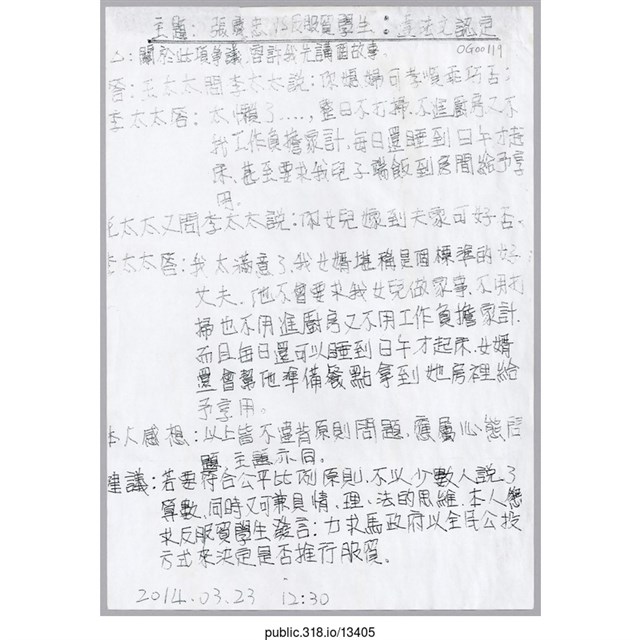 主題：張慶忠 反服貿學生：違法之認定
OG00119
：關於此項爭議,容許我先講個故事.
答：王太太問李太太說：你媳婦可孝順乖巧否？
李太太答：太懶了....，整日不打掃.不進廚房又不
我工作負擔家計,每日還睡到日午才起
床.甚至要求我兒子端飯到房間給予享
用。
王太太又問李太太說：你女兒嫁到夫家可好否.
李太太答：我太滿意了,我女婿堪稱是個標準的好
丈夫.他不會要求我女兒做家事.不用打
掃也不用進廚房又不用工作負擔家計.
而且每日還可以睡到日午才起床.女婿
還會幫他準備餐點拿到她房裡給
予享用。
本人感想：以上皆不違背原則問題.應屬心態問
題.主題亦同。
建議：若要符合公平比例原則.不以少數人說了
算數.同時又可兼具情、理、法的思維.本人懇
求反服貿學生發言：力求馬政府以全民公投
方式來決定是否推行服貿。
2014.03.23 12:30
public.318.io/13405